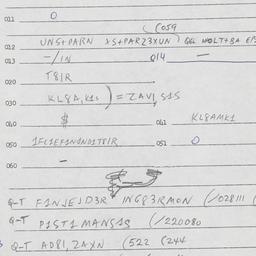 011 0
(C059
012 UNS+PARN xS+PARZ3XUN) QG WOLT+BA EPS
013 -/1N 014 -
020 T81R
030 KL8A,K1s ) = ZAVI, S1S
040 $ 041 KL8AMK1
050 1FL1EF1NDND1T81R 051 0
060 -
Q-T F1NJEJD3R ING83RMON (/028111 (
Q-T P1ST1 MANS1S (/220080
Q-T AD81, ZAXN (522 (244